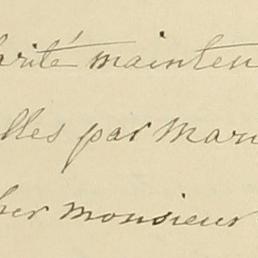 arité mainten
lles par Mari
her monsieur